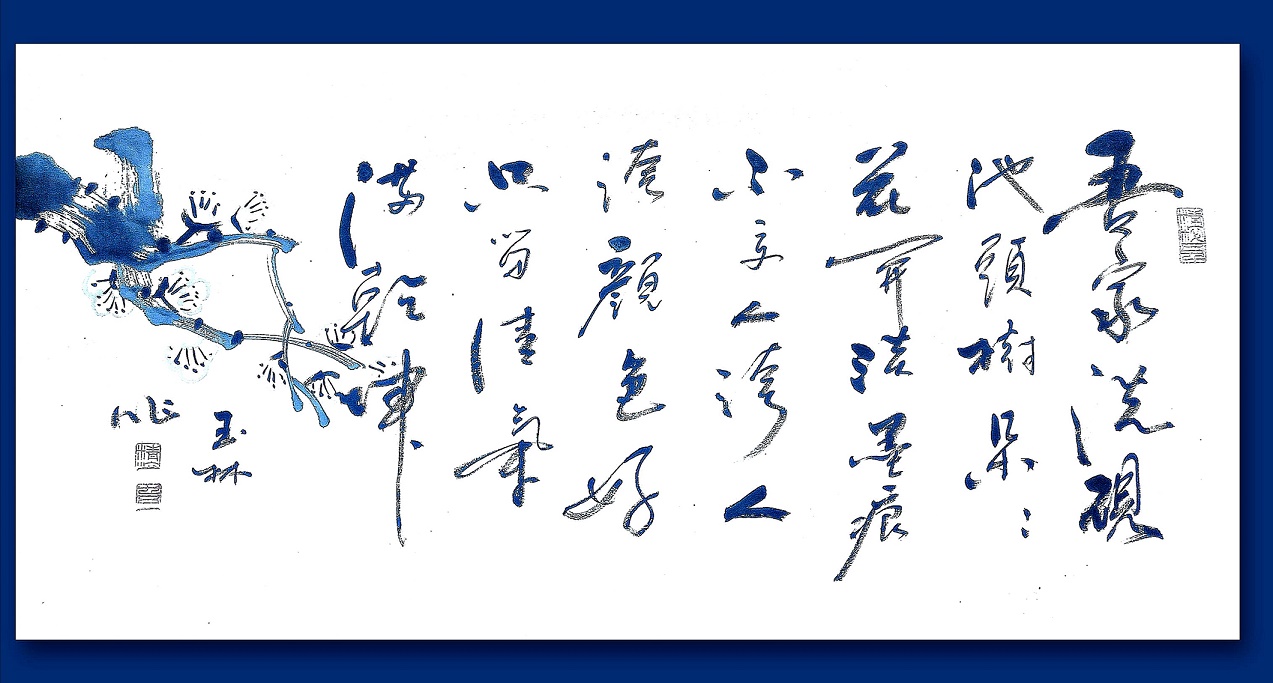 吾家洗硯
池頭樹朵〻
花開淡墨痕
不要人誇人
誇顏色好
只留清氣
滿乾坤
玉森
作